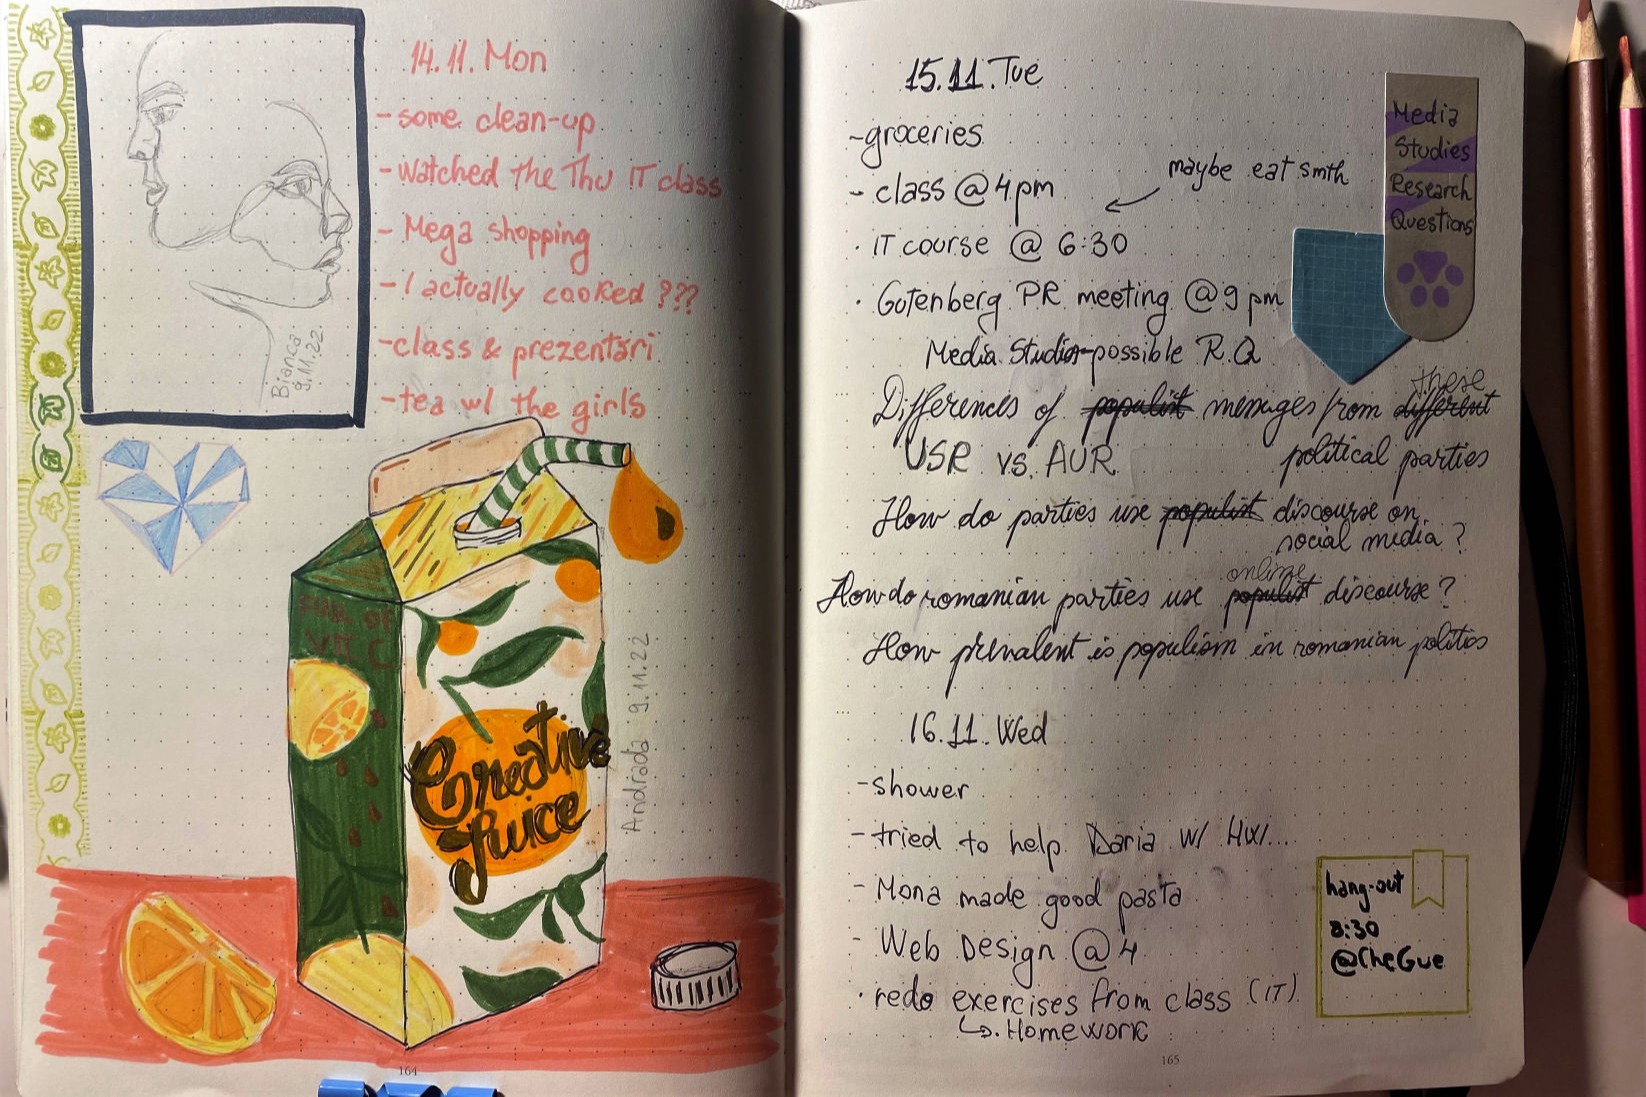 14.11. Mon
- some clean-up
- Watched the Thu IT class
- Mega shopping
- I actually cooked ???
- class & prezentări
- tea w/ the girls
Bianca
9.11.22
VIT C
Creative
Juice
Andrada 9.11.22
164
15.11.Tue
- groceries
- class @ 4pm
maybe eat smth
· IT course @ 6:30
· Gutenberg PR meeting @ 9 pm
Media
Studies
Research
Questions
Media Studies-possible R.Q
these
Differences of populist messages from different
USR vs. AUR political parties
How do parties use populist discourse on
social media?
online
How do romanian parties use populist discourse?
How prevalent is populism in romanian politics
16.11. Wed
- shower
- tried to help Daria w/ HW...
- Mona made good pasta
- Web Design @ 4
· redo exercises from class (IT)
↳. Homework
hang-out
8:30
@CheGue
165